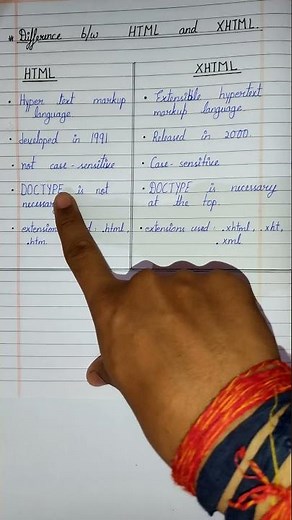 * Difference b/w HTML and XHTML.
HTML
• Hyper text markup
language.
• developed in 1991
• not case-sensitive
• DOCTYPE is not
• extension : .html,
.htm.
XHTML
• Extensible hypertext
markup language.
• Released in 2000.
• Case-sensitive
• DOCTYPE is necessary
at the top.
• extensions used : .xhtml, .xht,
.xml